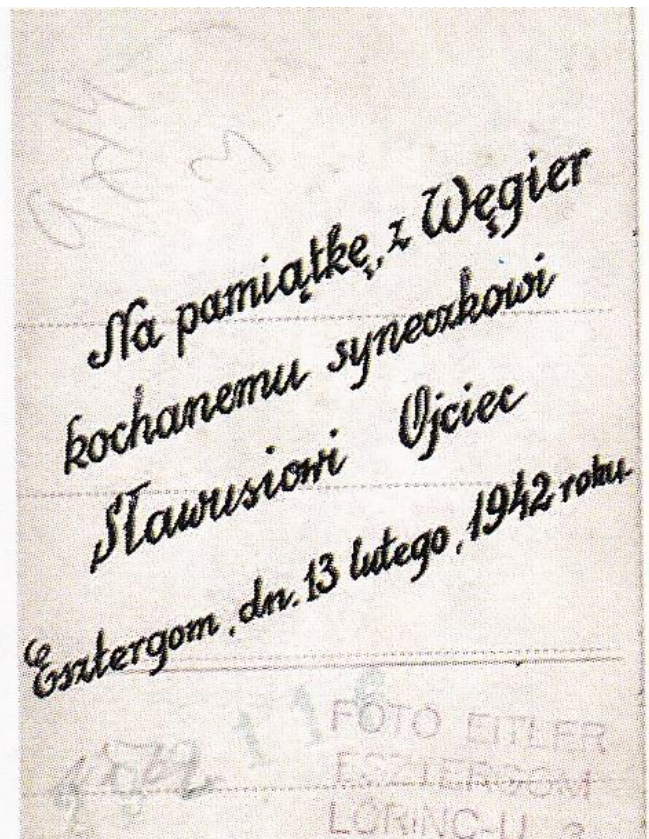 Na pamiątkę, z Węgier
kochanemu syneczkowi
Sławusiowi Ojciec
Esztergom, dn. 13 lutego, 1942 roku
FOTO EITLER
ESZTERGOM
LŐRINC-U.